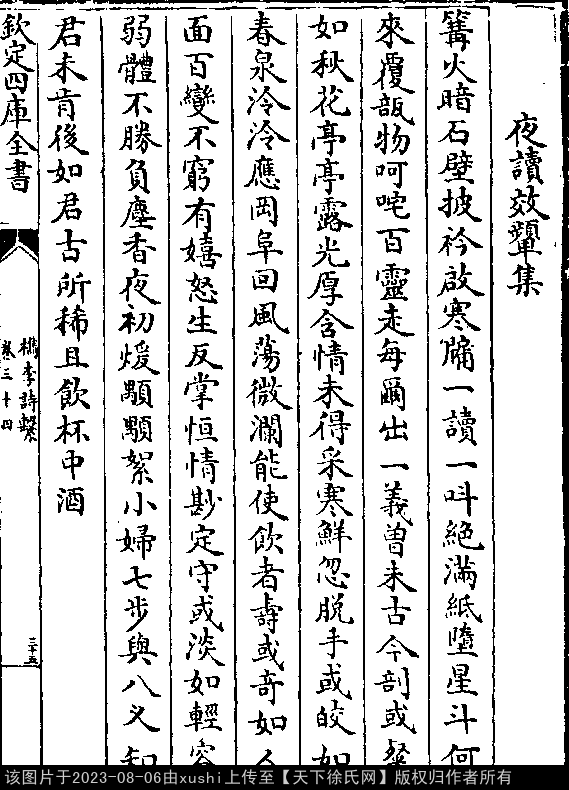 夜讀效顰集
篝火暗石壁披衿啟寒牖一讀一叫絶滿紙墮星斗何
來覆瓿物呵咤百靈走每爾出一義曽未古今剖或粲
如秋花亭亭露光厚含情未得采寒鮮忽脱手或皎如
春泉泠泠應岡阜回風蕩微瀾能使飲者壽或奇如人
面百變不窮有嬉怒生反掌恒情尠定守或淡如輕容
弱體不勝負塵香夜初煖顒顒絮小婦七步與八义知
君未肯後如君古所稀且飲杯中酒
欽定四庫全書
檇李詩繫
卷三十四
三十五
该图片于2023-08-06由xushi上传至【天下徐氏网】版权归作者所有